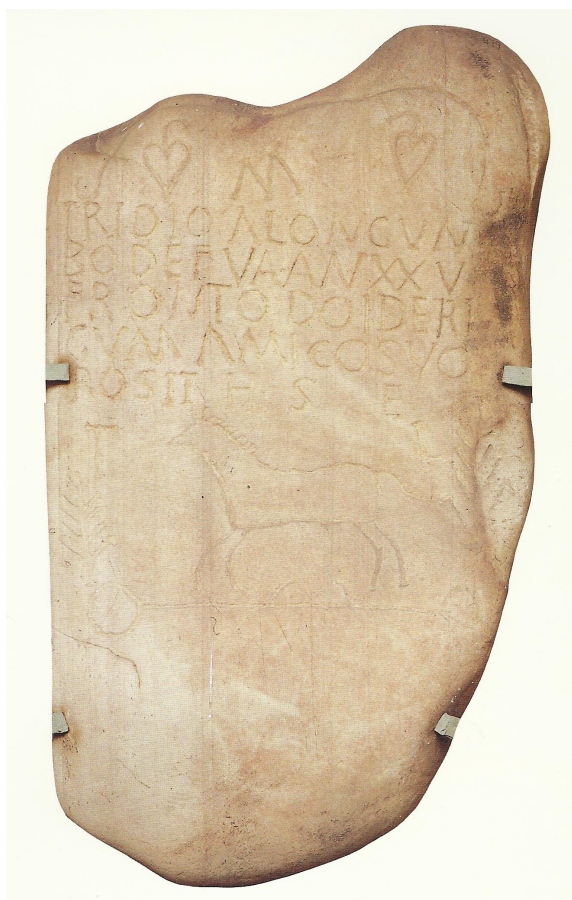 M
TRIDIO ALONGVN
BO DEF VA AN XXV
FRONTO DOIDERI
GVM AMICO SVO
POSIIT S E
T